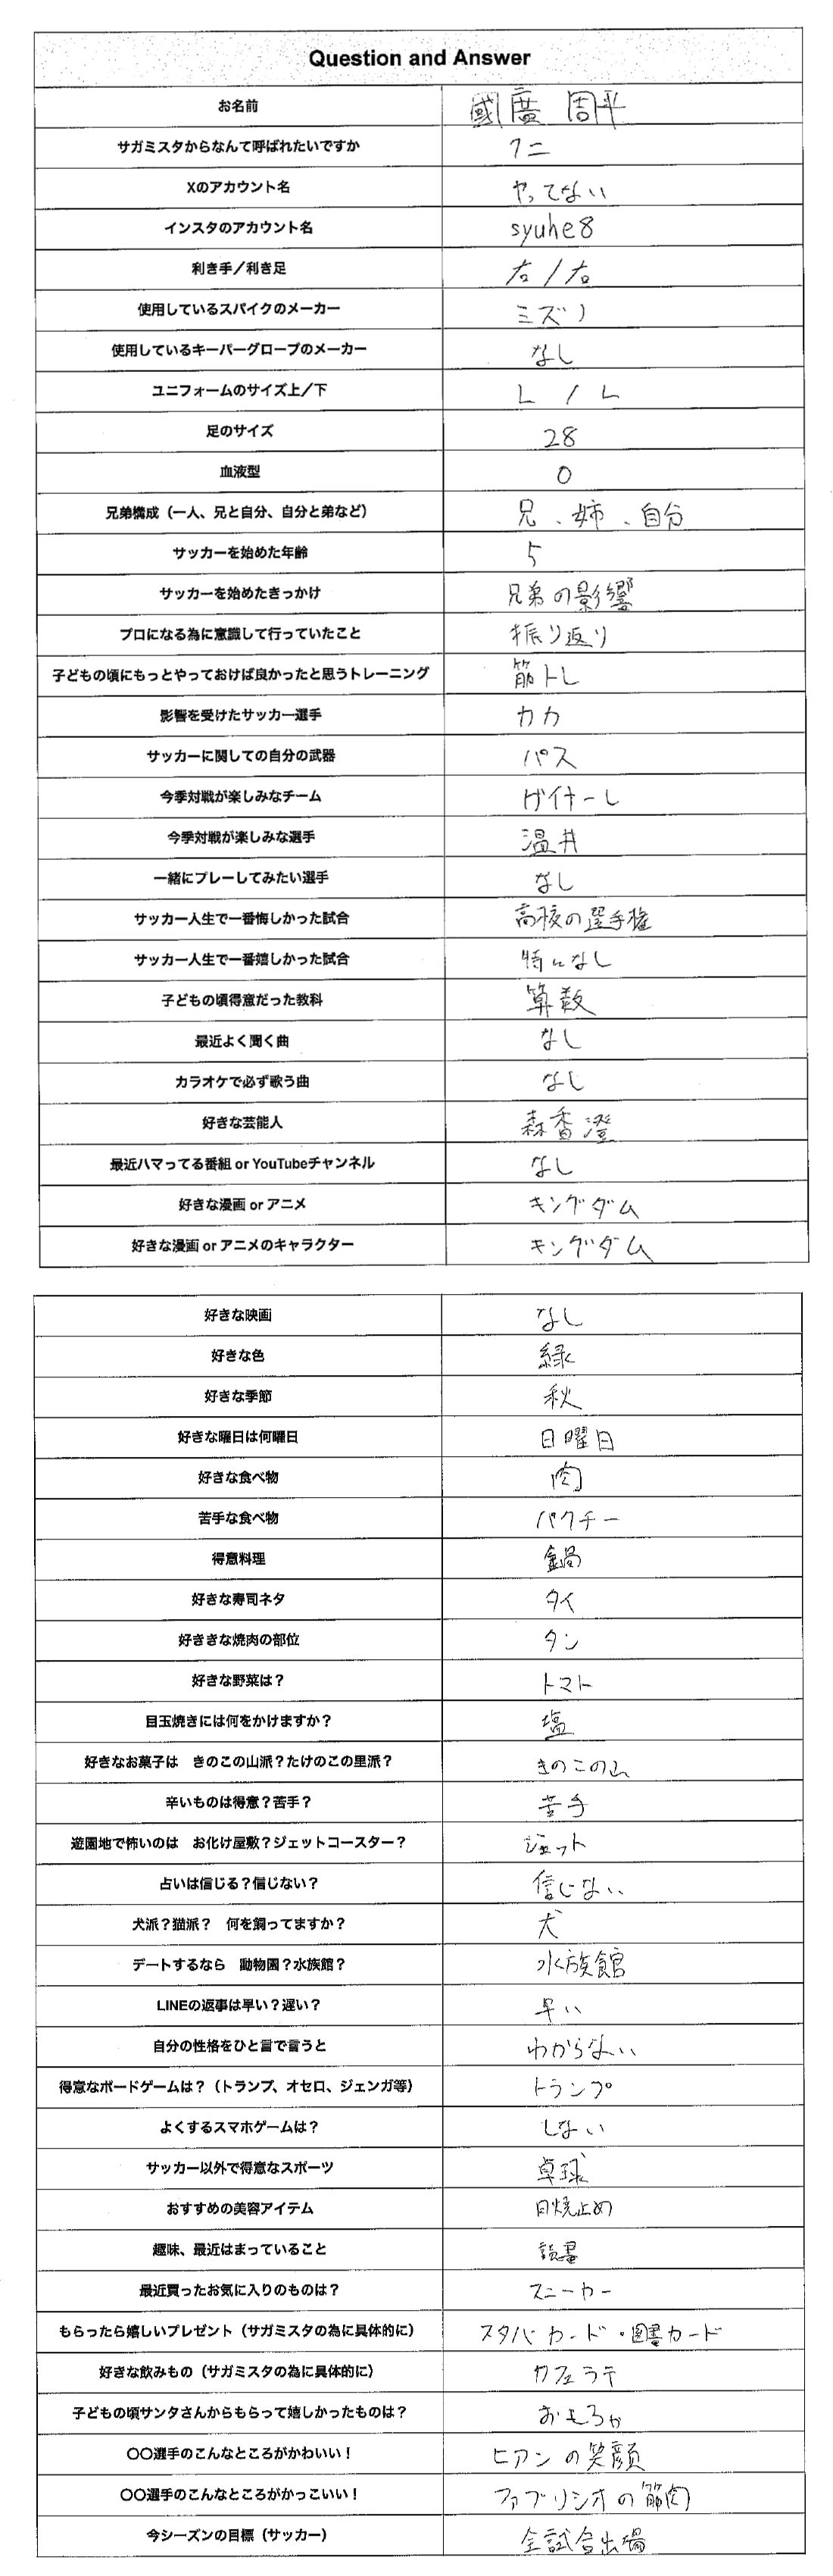 Question and Answer
お名前 國廣 周平
サガミスタからなんて呼ばれたいですか クニ
Xのアカウント名 やってない
インスタのアカウント名 syuhe8
利き手／利き足 右/右
使用しているスパイクのメーカー ミズノ
使用しているキーパーグローブのメーカー なし
ユニフォームのサイズ上／下 L / L
足のサイズ 28
血液型 O
兄弟構成（一人、兄と自分、自分と弟など） 兄、姉、自分
サッカーを始めた年齢 5
サッカーを始めたきっかけ 兄弟の影響
プロになる為に意識して行っていたこと 振り返り
子どもの頃にもっとやっておけば良かったと思うトレーニング 筋トレ
影響を受けたサッカー選手 カカ
サッカーに関しての自分の武器 パス
今季対戦が楽しみなチーム ガイナーレ
今季対戦が楽しみな選手 温井
一緒にプレーしてみたい選手 なし
サッカー人生で一番悔しかった試合 高校の選手権
サッカー人生で一番嬉しかった試合 特になし
子どもの頃得意だった教科 算数
最近よく聞く曲 なし
カラオケで必ず歌う曲 なし
好きな芸能人 森香澄
最近ハマってる番組 or YouTubeチャンネル なし
好きな漫画 or アニメ キングダム
好きな漫画 or アニメのキャラクター キングダム
好きな映画 なし
好きな色 緑
好きな季節 秋
好きな曜日は何曜日 日曜日
好きな食べ物 肉
苦手な食べ物 パクチー
得意料理 鍋
好きな寿司ネタ タイ
好ききな焼肉の部位 タン
好きな野菜は？ トマト
目玉焼きには何をかけますか？ 塩
好きなお菓子は　きのこの山派？たけのこの里派？ きのこの山
辛いものは得意？苦手？ 苦手
遊園地で怖いのは　お化け屋敷？ジェットコースター？ ジェット
占いは信じる？信じない？ 信じない
犬派？猫派？　何を飼ってますか？ 犬
デートするなら　動物園？水族館？ 水族館
LINEの返事は早い？遅い？ 早い
自分の性格をひと言で言うと わからない
得意なボードゲームは？（トランプ、オセロ、ジェンガ等） トランプ
よくするスマホゲームは？ しない
サッカー以外で得意なスポーツ 卓球
おすすめの美容アイテム 日焼止め
趣味、最近はまっていること 読書
最近買ったお気に入りのものは？ スニーカー
もらったら嬉しいプレゼント（サガミスタの為に具体的に） スタバカード・図書カード
好きな飲みもの（サガミスタの為に具体的に） カフェラテ
子どもの頃サンタさんからもらって嬉しかったものは？ おもちゃ
〇〇選手のこんなところがかわいい！ ヒアンの笑顔
〇〇選手のこんなところがかっこいい！ ファブリシオの筋肉
今シーズンの目標（サッカー） 全試合出場